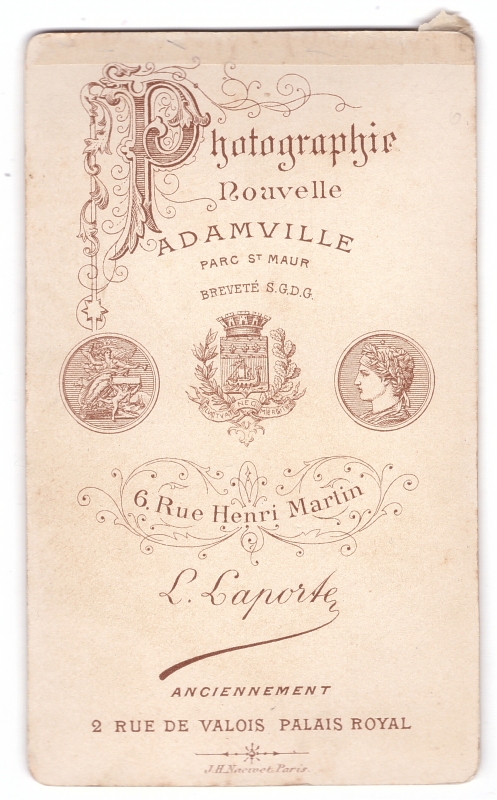 Photographie
Nouvelle
ADAMVILLE
PARC ST MAUR
BREVETÉ S.G.D.G.
FLUCTUAT NEC MERGITUR
6, Rue Henri Martin
L. Laporte
ANCIENNEMENT
2 RUE DE VALOIS PALAIS ROYAL
J.H. Paris.